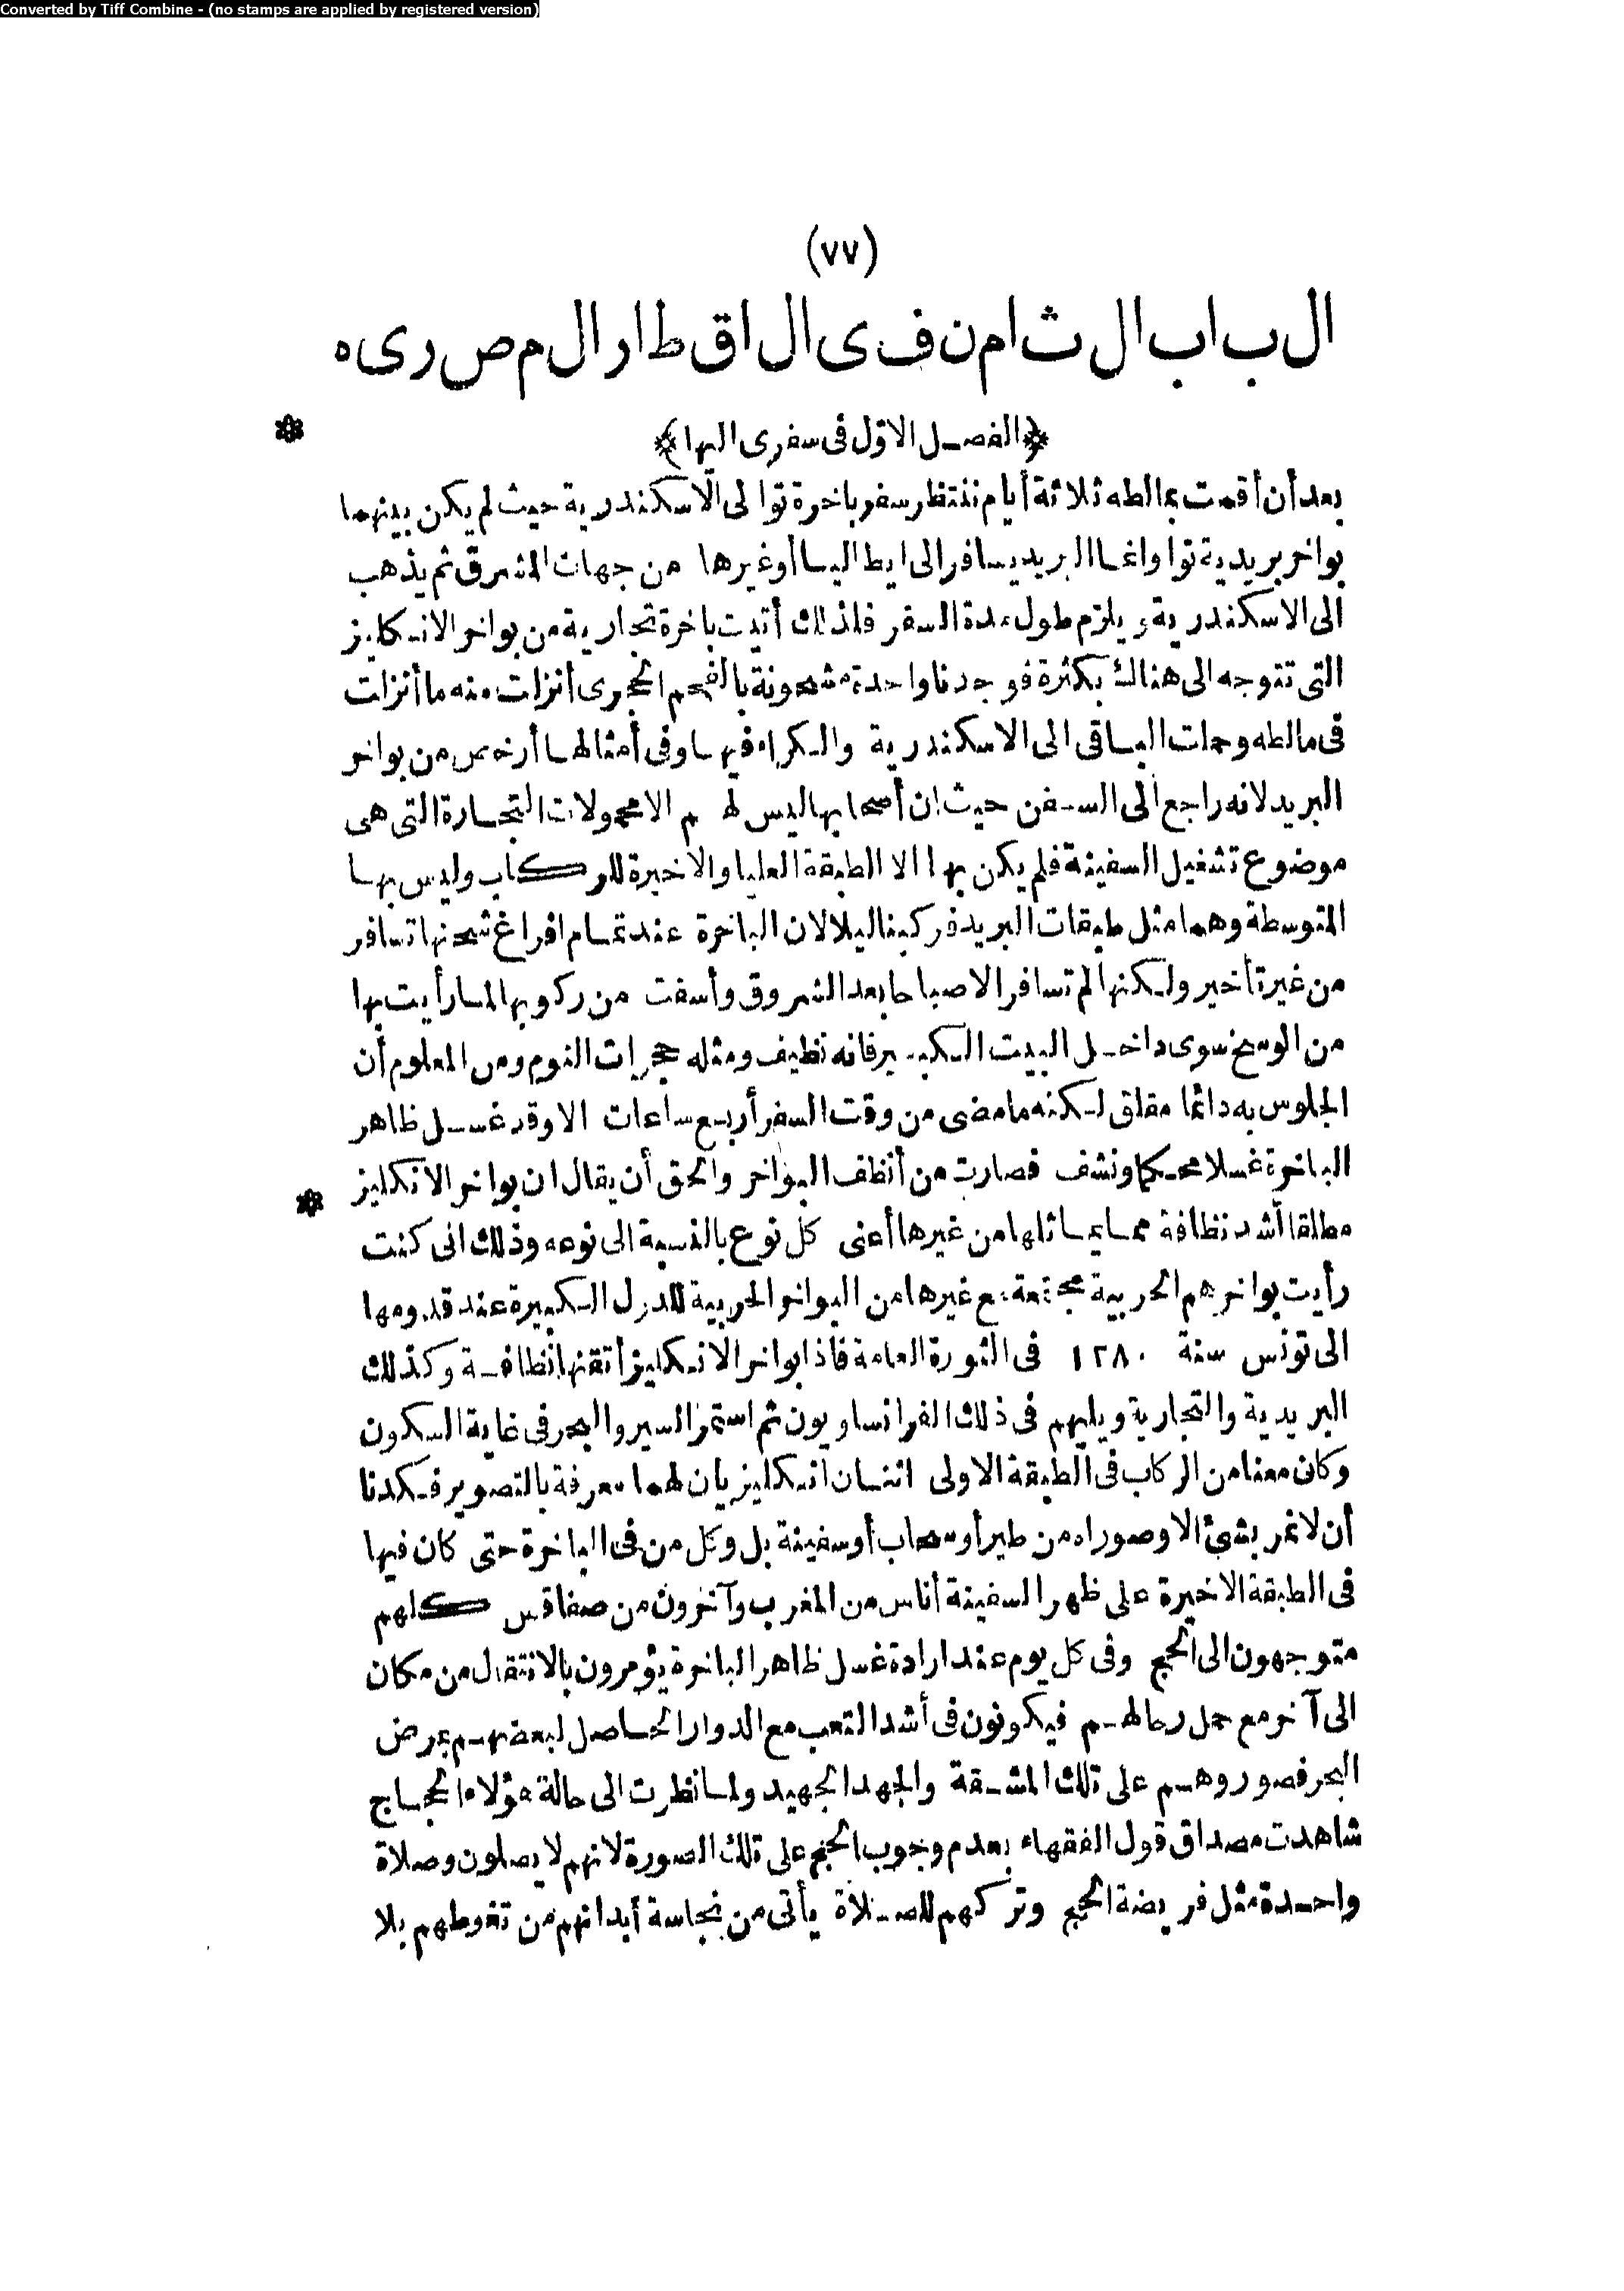 Converted by Tiff Combine - (no stamps are applied by registered version)
(٧٧)
الباب الثامن فى الاقطار المصريه
﴿الفصل الاوّل فى سفرى اليها﴾
بعد أن أقمت بمالطه ثلاثة أيام ننتظر سفر باخرة توا الى الاسكندرية حيث لم يكن بينهما
بواخر بريدية توا وانما البريد يسافر الى ايطاليا أو غيرها من جهات المشرق ثم يذهب
الى الاسكندرية ويلزم طول مدة السفر فلذلك أتيت باخرة تجارية من بواخر الانكليز
التى تتوجه الى هنالك بكثرة فوجدنا واحدة مشحونة بالفحم الحجرى أنزلت منه ما أنزلت
فى مالطه وحملت الباقى الى الاسكندرية والكراء فيها وفى أمثالها أرخص من بواخر
البريد لانه راجع الى السفن حيث ان أصحابها ليس لهم الا محمولات التجارة التى هى
موضوع تشغيل السفينة فلم يكن بها الا الطبقة العليا والاخيرة للركاب وليس بها
المتوسطة وهما مثل طبقات البريد فركبنا ليلا لان الباخرة عند تمام افراغ شحنها تسافر
من غير تأخير ولكنها لم تسافر الا صباحا بعد الشروق وأسفت من ركوبها لما رأيت بها
من الوسخ سوى داخل البيت الكبير فانه نظيف ومثله حجرات النوم ومن المعلوم أن
الجلوس به دائما مقلق لكنه ما مضى من وقت السفر أربع ساعات الا وقد غسل ظاهر
الباخرة غسلا محكما ونشف فصارت من أنظف البواخر والحق أن يقال ان بواخر الانكليز
مطلقا أشد نظافة مما يماثلها من غيرها أعنى كل نوع بالنسبة الى نوعه وذلك انى كنت
رأيت بواخرهم الحربية مجتمعة مع غيرها من البواخر الحربية للدول الكبيرة عند قدومها
الى تونس سنة ١٢٨٠ فى الثورة العامة فاذا بواخر الانكليز أتقنها نظافة وكذلك
البريدية والتجارية ويليهم فى ذلك الفرانساويون ثم استمر السير والبحر فى غاية السكون
وكان معنا من الركاب فى الطبقة الاولى اثنان انكليزيان لهما معرفة بالتصوير فكدنا
أن لا نمر بشئ الا وصوراه من طير أو سحاب أو سفينة بل وكل من فى الباخرة حتى كان فيها
فى الطبقة الاخيرة على ظهر السفينة أناس من المغرب وآخرون من صفاقس كلهم
متوجهون الى الحج وفى كل يوم عند ارادة غسل ظاهر الباخرة يؤمرون بالانتقال من مكان
الى آخر مع حمل رحالهم فيكونون فى أشد التعب مع الدوار الحاصل لبعضهم بمرض
البحر فصوروهم على تلك المشقة والجهد الجهيد ولما نظرت الى حالة هؤلاء الحجاج
شاهدت مصداق قول الفقهاء بعدم وجوب الحج على تلك الصورة لانهم لا يصلون وصلاة
واحدة مثل فريضة الحج وتركهم للصلاة يأتى من نجاسة أبدانهم من تغوطهم بلا